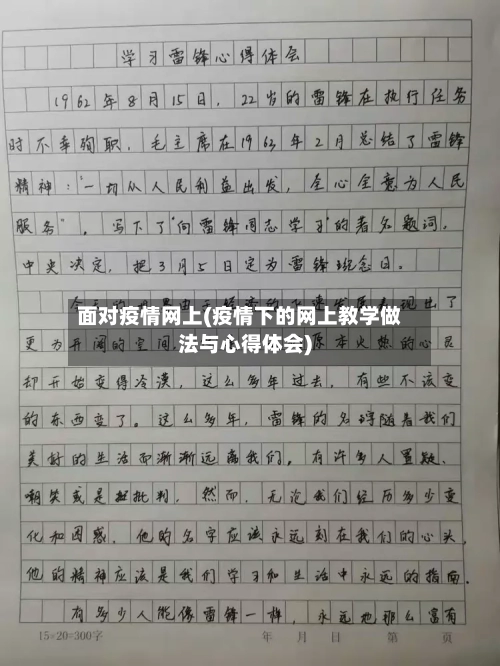 学习雷锋心得体会
1962年8月15日，22岁的雷锋在执行任务
时不幸殉职，毛主席在1963年2月总结了雷锋
精神："一切从人民利益出发，全心全意为人民
服务"。写下了"向雷锋同志学习"的著名题词，
中央决定，把3月5日定为雷锋纪念日。
现出了
面对疫情网上(疫情下的网上教学做
法与心得体会)
更为开阔的空间 原本火热的心灵
却开始变得冷漠，这么多年过去，有些不该变
的东西变了。这么多年，雷锋的名字随着我们
美好的生活而渐渐远离我们。有许多人置疑、
嘲笑或是批判，然而，无论我们经历多少变
化和困惑，他的名字应该永远刻在我们的心头，
他的精神应该是我们学习和生活中永远的指南。
有多少人能像雷锋一样，永远地那么富有
15×20=300字 年 月 日 第 页